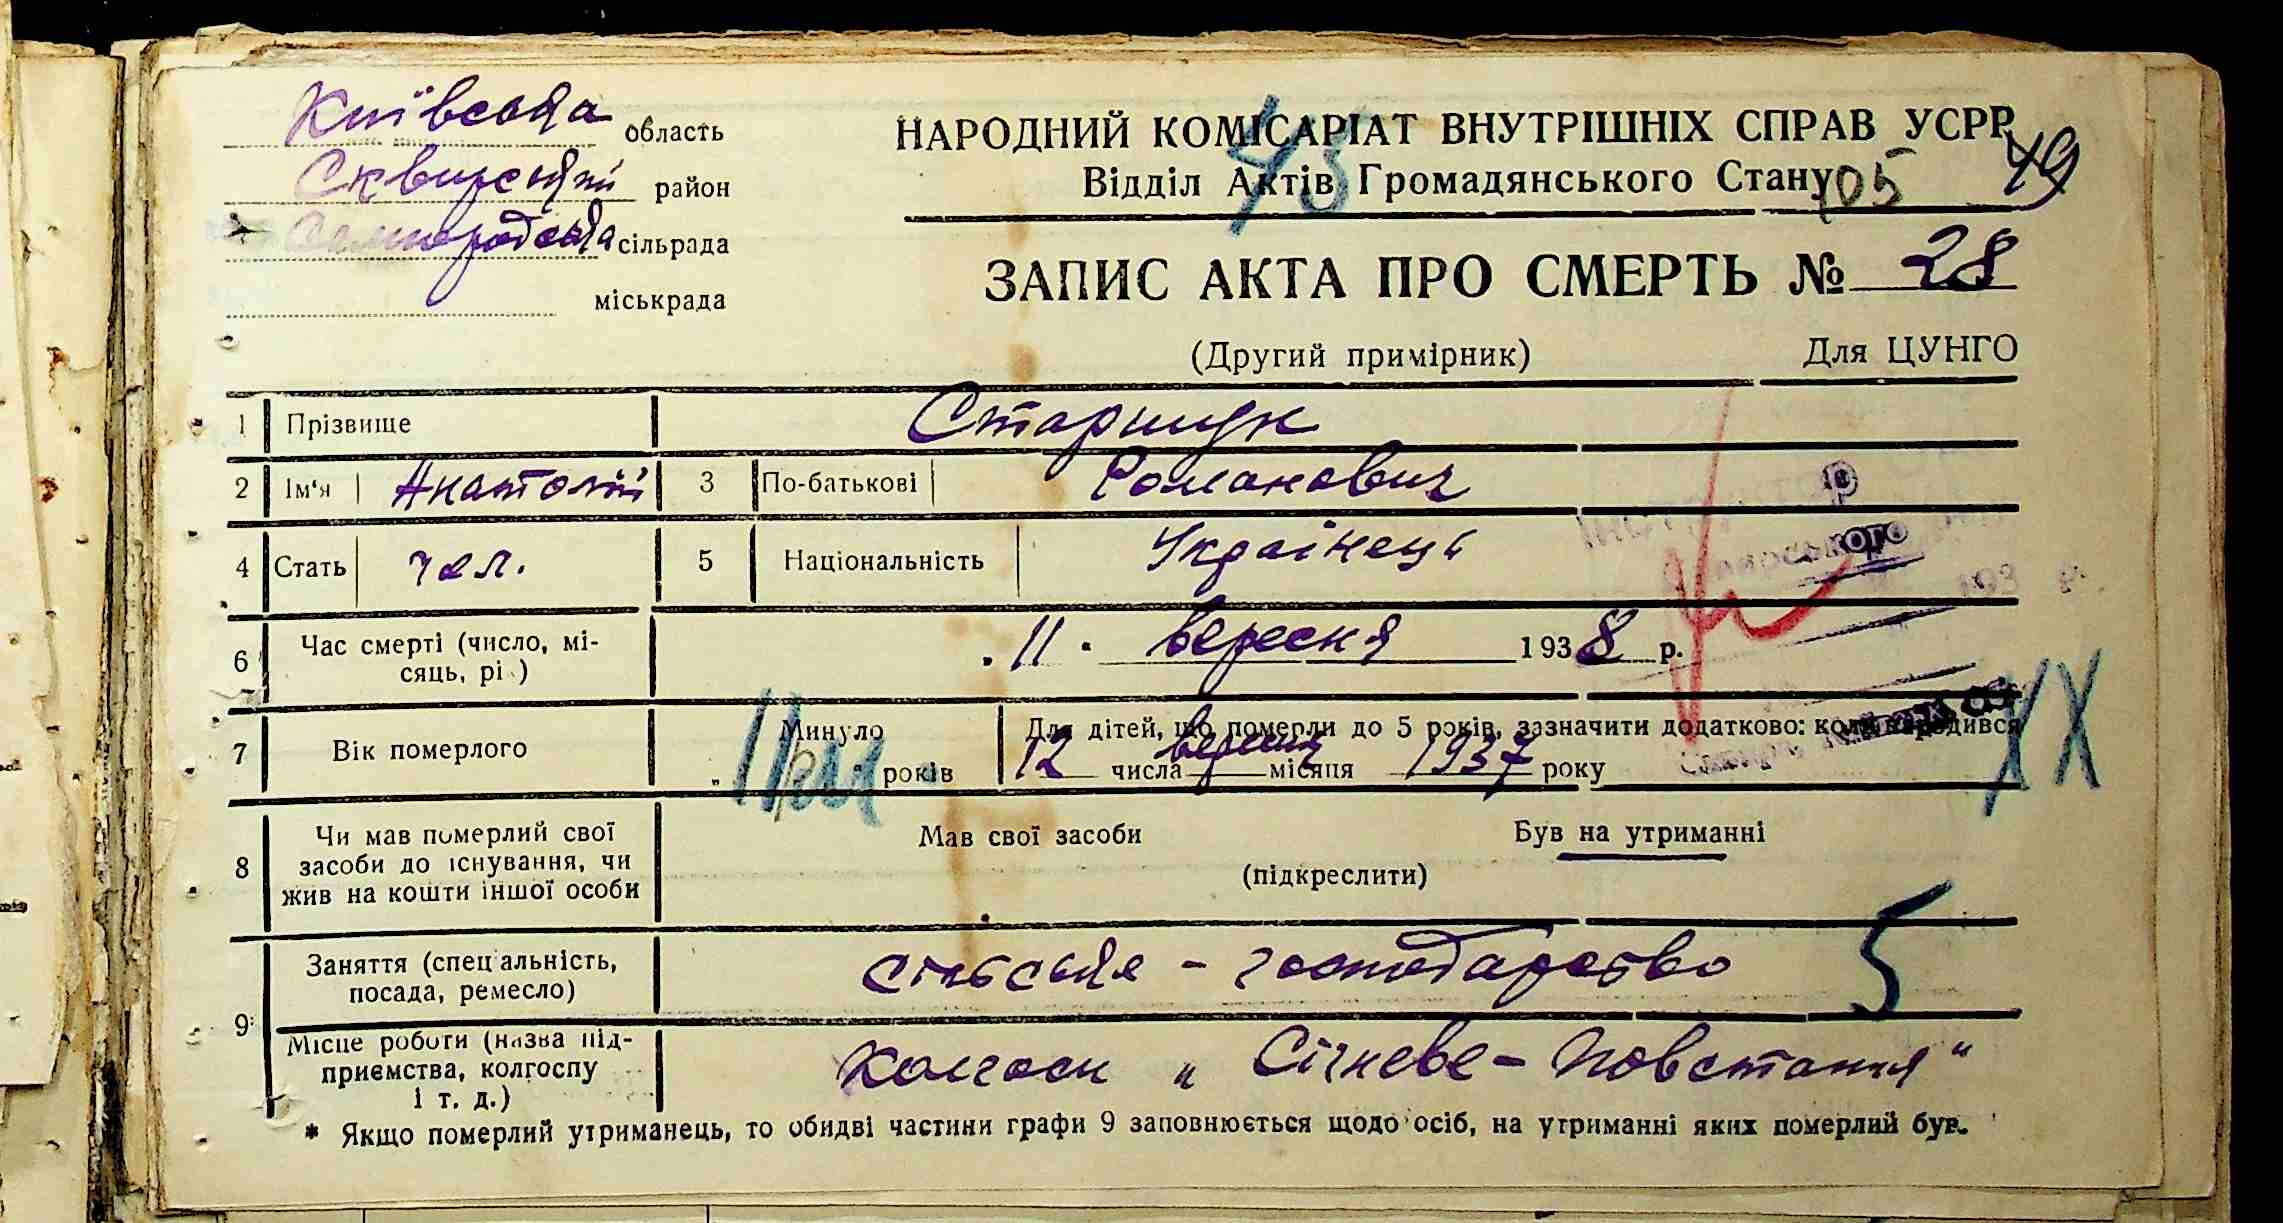 Київська область
Сквирський район
сільрада
міськрада
НАРОДНИЙ КОМІСАРІАТ ВНУТРІШНІХ СПРАВ УСРР
Відділ Актів Громадянського Стану
73
105
49
ЗАПИС АКТА ПРО СМЕРТЬ № 28
(Другий примірник) Для ЦУНГО
1 Прізвище Старшук
2 Ім'я Анатолій 3 По-батькові Романович
4 Стать чол. 5 Національність Українець
6 Час смерті (число, мі-
сяць, рі ) „11" вересня 1938 р.
7 Вік померлого Минуло 11 років
Для дітей, що померли до 5 років, зазначити додатково: коли народився
12 числа вересня місяця 1937 року
XX
8 Чи мав померлий свої
засоби до існування, чи
жив на кошти іншої особи
Мав свої засоби Був на утриманні
(підкреслити)
9 Заняття (спеціальність,
посада, ремесло) сільське - господарство 5
Місце роботи (назва під-
приємства, колгоспу
і т. д.) Колгосп „Січневе - Повстання"
* Якщо померлий утриманець, то обидві частини графи 9 заповнюється щодо осіб, на утриманні яких померлий був.